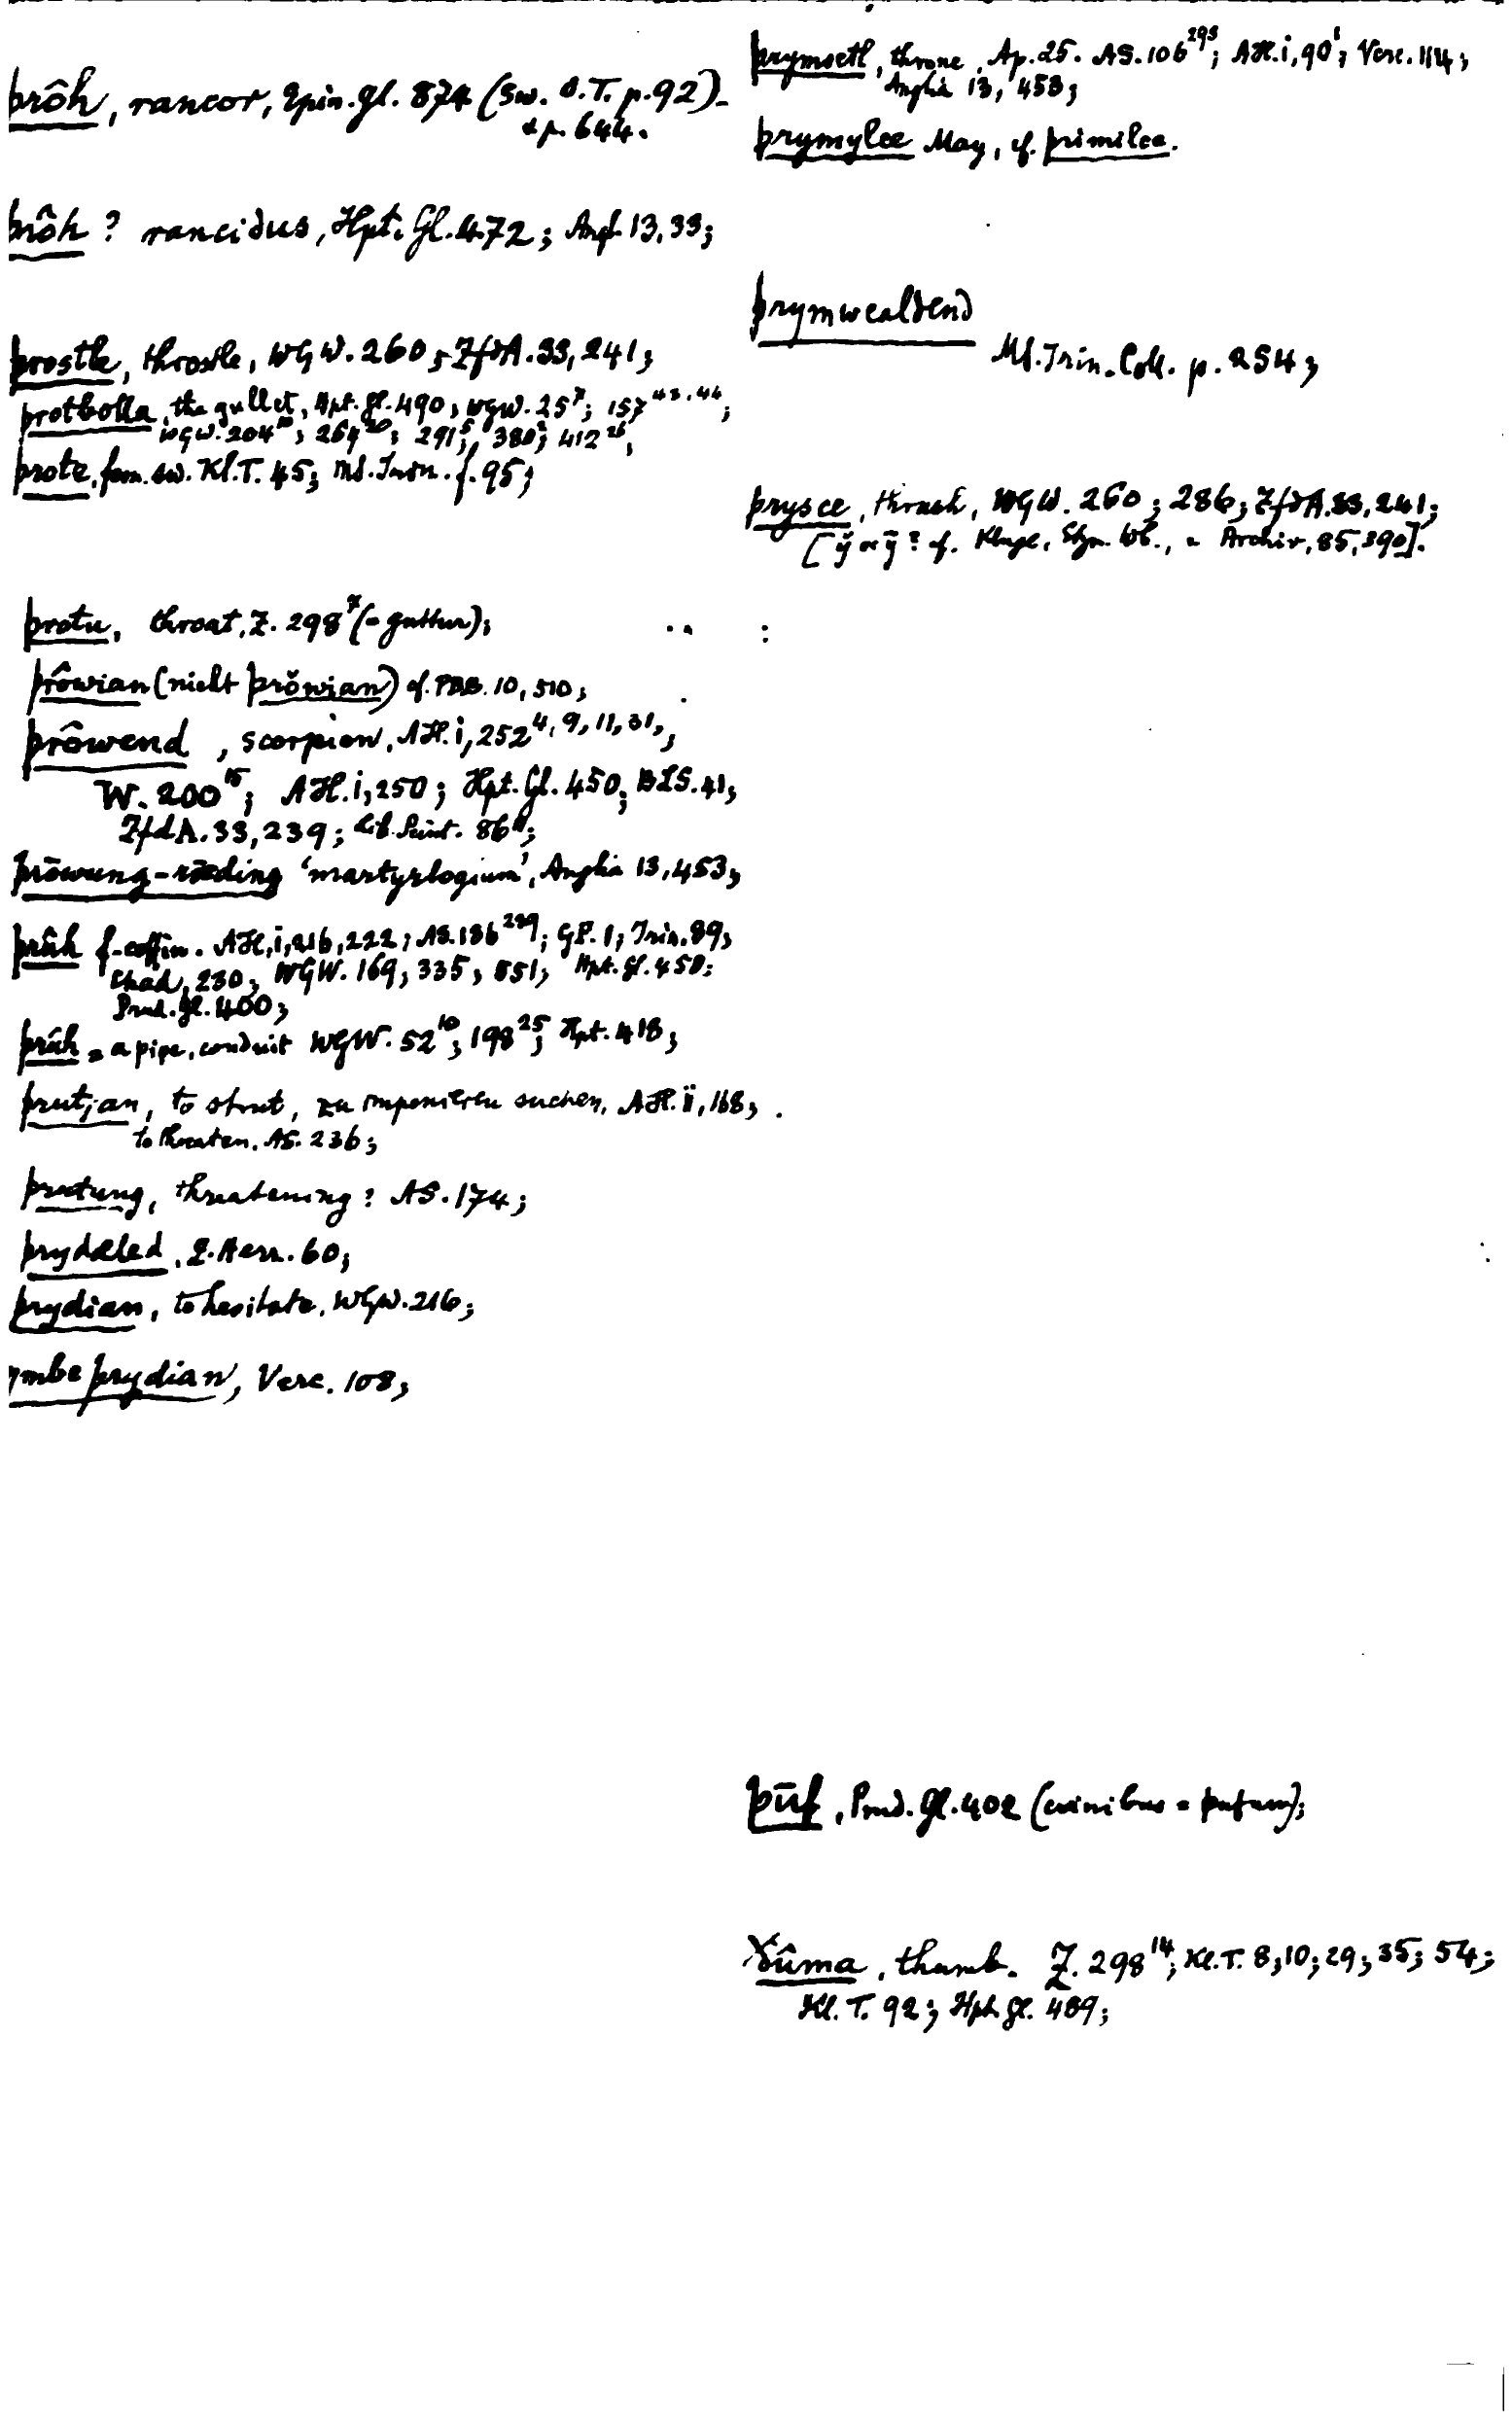 þrôh, rancor, Epin. Gl. 874 (Sw. O.T. p. 92).
& p. 644.
þrôh? rancidus, Hpt. Gl. 472; Angl. 13, 33;
þrostle, throstle, WGW. 260; ZfdA. 33, 241;
þrotbolla, the gullet, Hpt. Gl. 490, WGW. 25⁷; 157⁴³·⁴⁴;
WGW. 204¹⁰; 264²⁰; 291⁵; 380²; 412²⁶,
þrote, fem. sw. Kl. T. 45; f. 95;
þrotu, throat, Z. 298⁷ (= guttur);
þrôwian (nicht þrŏwian) cf. PBB. 10, 510;
þrôwend, scorpion, AH. i, 252⁴,⁹,¹¹,³¹,;
W. 200¹⁵; AH. i, 250; Hpt. Gl. 450; BLS. 41;
ZfdA. 33, 239; Lib. Scint. 86;
þrōwung-rǣding 'martyrlogium', Anglia 13, 453;
þrûh f. coffin. AH, i, 216, 222; AS. 186; GP. 1; Trin. 89;
Chad, 230; WGW. 169, 335, 551; Hpt. Gl. 450;
Prud. Gl. 400;
þrûh = a pipe, conduit WGW. 52¹⁰; 198²⁵; Hpt. 418;
þrutian, to strut, zu imponieren suchen, AH. ii, 168;
to threaten. AS. 236;
þrutung, threatening? AS. 174;
þrydæled, 60;
þrydian, to hesitate, WGW. 216;
ymbeþrydian, Verc. 108;
þrymsetl, throne, Ap. 25. AS. 106²⁹³; AH. i, 90¹; Verc. 114;
Anglia 13, 453;
þrymylce May, cf. þrimilce.
þrymwealdend
Ms. Trin. Coll. p. 254;
þrysce, thrush, WGW. 260; 286; ZfdA. 33, 241;
[y̆ or ȳ? cf. Kluge, Etym. Wb., u. Archiv, 85, 390].
þūf, Prud. Gl. 402 (crinibus = þufum);
Ðûma, thumb. Z. 298¹⁴; Kl. T. 8; 10; 29; 35; 54;
Kl. T. 92; Hpt. Gl. 489;